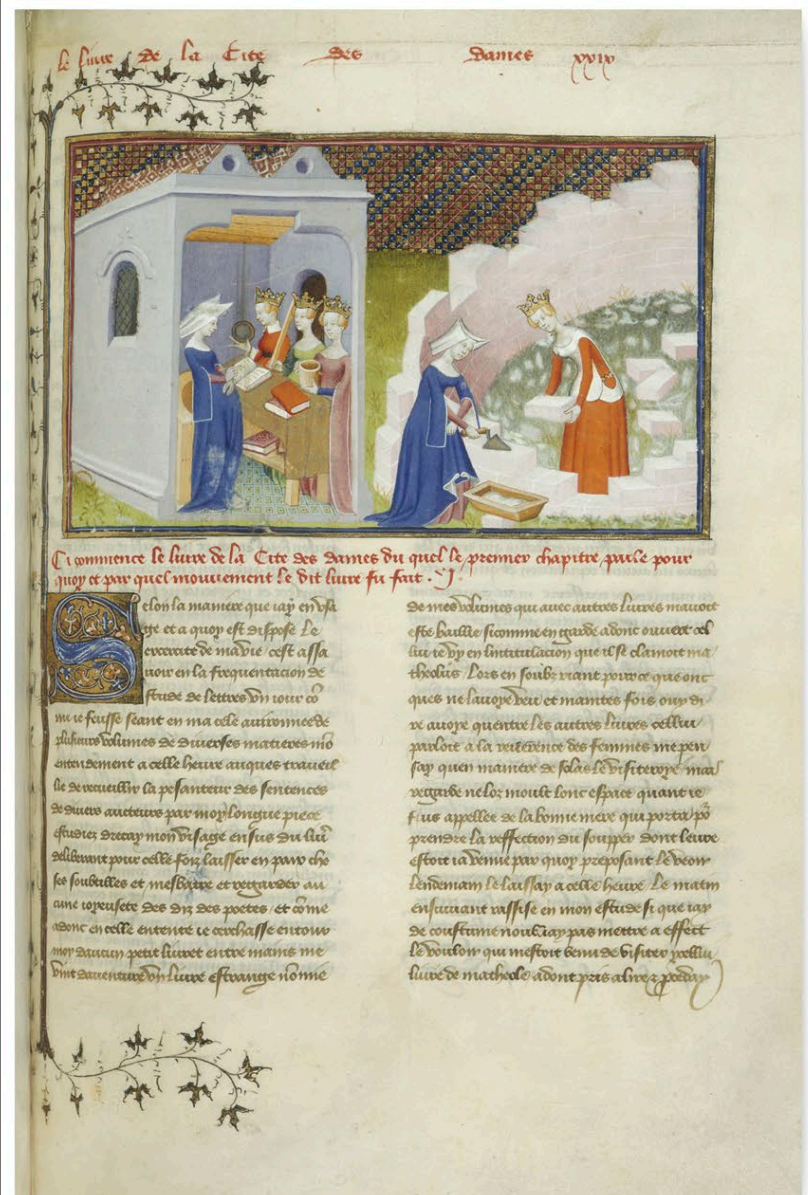 le livre de la Cite des dames xxix
Ci commence le livre de la Cite des dames du quel le premier chapitre parle pour
quoy et par quel mouvement le dit livre fu fait . I .
Selon la maniere que iay en usa
ge et a quoy est dispose le
exercite de ma vie cest assa
voir en la frequentacion de
stude de lettres un iour co
me ie feusse seant en ma cele avironnee de
plusieurs volumes de diverses matieres mo
entendement a celle heure auques traveil
lie de recueillir la pesanteur des sentences
de divers aucteurs par moy longue piece
estudiez drecay mon visage ensus du liv
deliberant pour celle foiz laisser en paix cho
ses soubtilles et mesbatre et regarder au
cune ioyeusete des diz des poetes et come
adonc en celle entente ie cerchasse entour
moy daucun petit livret entre mains me
vint daventure un livre estrange nomme
de mes volumes qui avec autres livres mavoit
este baille si comme en garde adonc ouvert cel
lui ie vy en lintitulacion que il se clamoit ma
theolus Lors en soubzriant pource que onc
ques ne lavoye veu et maintes fois ouy di
re avoye quentre les autres livres cellui
parloit a la reverence des femmes me pen
say quen maniere de solas le visiteroye mais
regarde ne loz moult lonc espace quant ie
fus appellee de la bonne mere qui me porta po
prendre la reffection du soupper dont leure
estoit ia venue par quoy proposant le veoir
lendemain le laissay a celle heure Le matin
ensuivant rassise en mon estude si que iay
de coustume noubliay pas mettre a effect
le vouloir qui mestoit venu de visiter ycellui
livre de matheole adont pris a lire